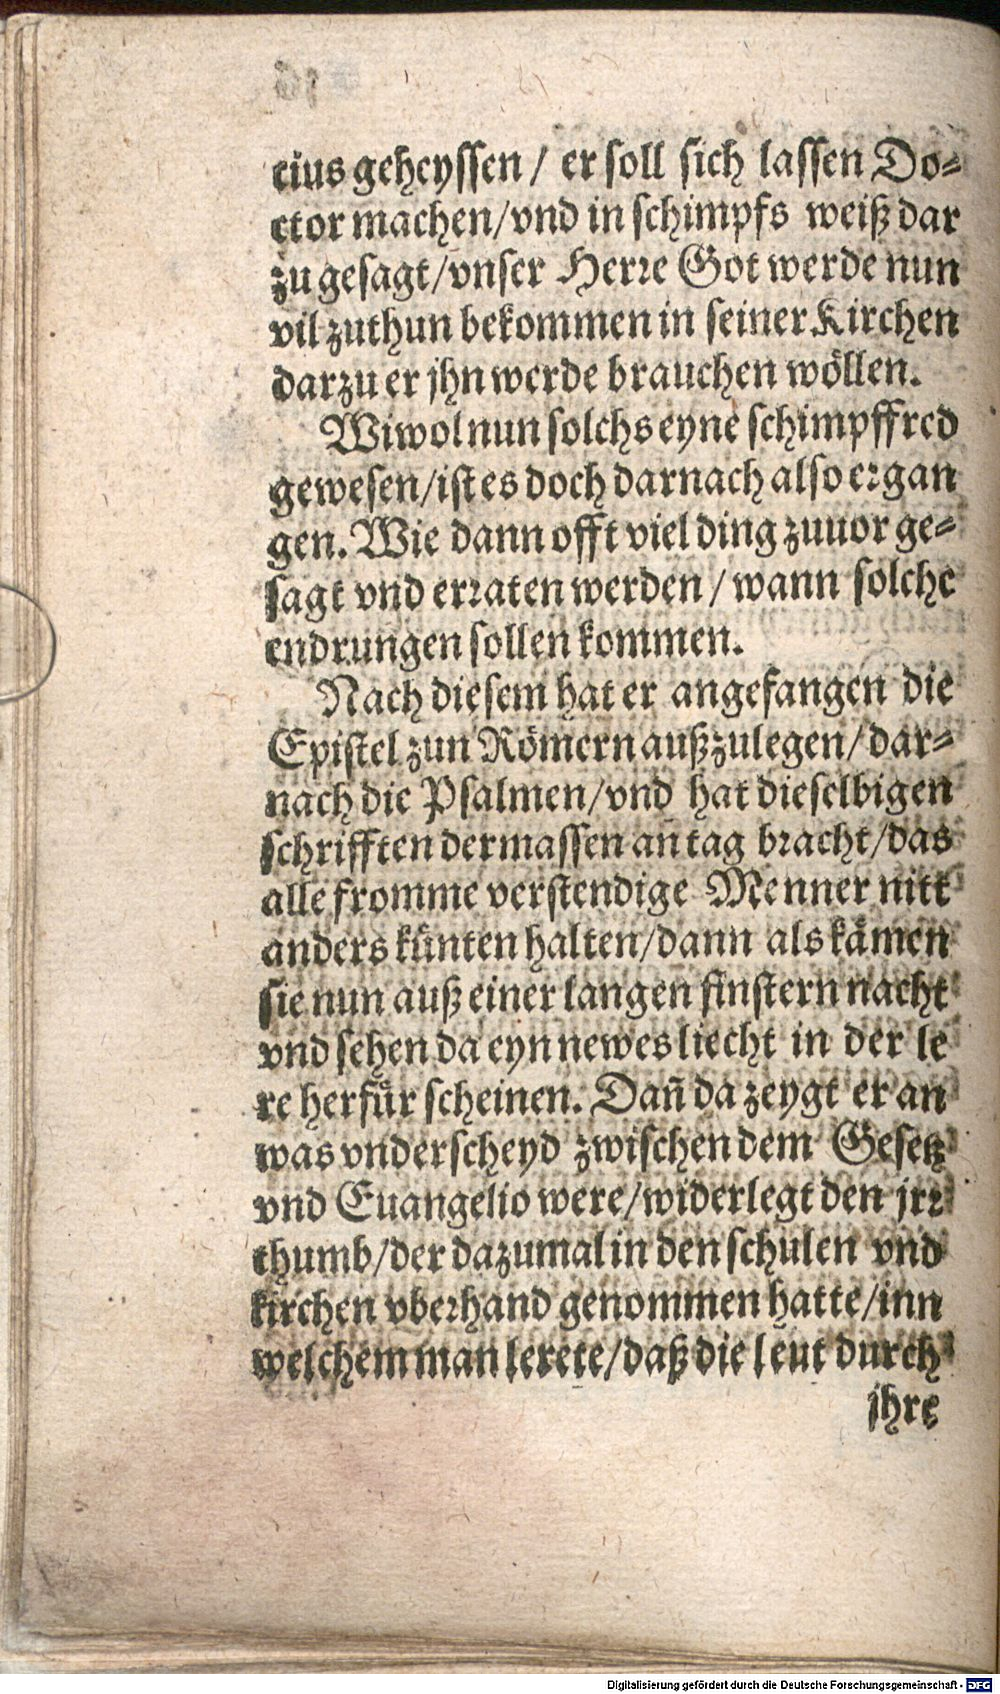 cius geheyssen / er soll sich lassen Do⸗
ctor machen/vnd in schimpfs weiß dar
zu gesagt/vnser Herre Got werde nun
vil zuthun bekommen in seiner Kirchen
darzu er jhn werde brauchen wöllen.
Wiwol nun solchs eyne schimpffred
gewesen/ist es doch darnach also ergan
gen. Wie dann offt viel ding zuuor ge⸗
sagt vnd erraten werden / wann solche
endrungen sollen kommen.
Nach diesem hat er angefangen die
Epistel zun Römern außzulegen/dar⸗
nach die Psalmen/vnd hat dieselbigen
schrifften dermassen an̄ tag bracht/das
alle fromme verstendige Menner nitt
anders künten halten/dann als kämen
sie nun auß einer langen finstern nacht
vnd sehen da eyn newes liecht in der le
re herfür scheinen. Dan̄ da zeygt er an
was vnderscheyd zwischen dem Gesetz
vnd Euangelio were/widerlegt den jrr
thumb/der dazumal in den schulen vnd
kirchen vberhand genommen hatte/inn
welchem man lerete/daß die leut durch
jhre
Digitalisierung gefördert durch die Deutsche Forschungsgemeinschaft - DFG